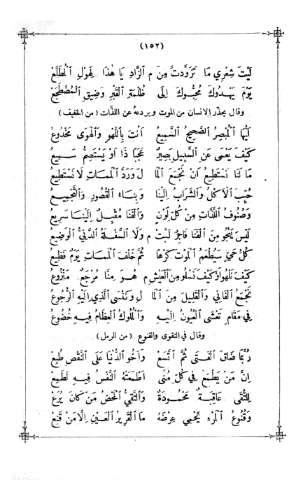 (١٥٢)
لَيْتَ شِعْرِي مَا تَزَوَّدْتَ مِنَ م الزَّادِ يَا هٰذَا لِهَوْلِ الْمُطَّلَعْ
يَوْمَ يَهْدُوكَ مُحِبُّوكَ إِلَى ظُلْمَةِ الْقَبْرِ وَضِيقِ الْمُضْطَجَعْ
وقال يحذّر الانسان من الموت ويردعه عن اللذات (من الخفيف)
أَيُّهَا الْمُبْصِرُ الصَّحِيحُ السَّمِيعُ أَنْتَ بِاللَّهْوِ وَالْهَوَى مَخْدُوعُ
كَيْفَ يَعْمَى عَنِ السَّبِيلِ بَصِيرٌ عَجَبًا ذَا أَوْ يَسْتَصِمُّ سَمِيعُ
مَا لَنَا نَسْتَطِيعُ أَنْ نَجْمَعَ الْمَا لَ وَرَدَّ الْمَمَاتِ لَا نَسْتَطِيعُ
حُبِّبَ الْأَكْلُ وَالشَّرَابُ إِلَيْنَا وَبِنَاءُ الْقُصُورِ وَالتَّجْمِيعُ
وَصُنُوفُ اللَّذَّاتِ مِنْ كُلِّ لَوْنٍ وَالْفَنَا مُقْبِلٌ إِلَيْنَا سَرِيعُ
لَيْسَ يَنْجُو مِنَ الْفَنَا فَاجِرُ الْبَيْتِ م وَلَا السِّفْلَةُ الدَّنِيُّ الْوَضِيعُ
كُلُّ حَيٍّ سَيَطْعَمُ الْمَوْتَ كَرْهًا ثُمَّ خَلْفَ الْمَمَاتِ يَوْمٌ فَظِيعُ
كَيْفَ نَلْهُو أَوْ كَيْفَ نَسْلُو مِنَ الْعَيْشِ م هُوَ مِنَّا مُرْجَعٌ مَنْزُوعُ
نَجْمَعُ الْفَانِيَ وَالْقَلِيلَ مِنَ الْمَا لِ وَنَنْسَى الَّذِي إِلَيْهِ الرُّجُوعُ
فِي مَقَامٍ تَعْشَى الْعُيُونُ إِلَيْهِ وَالْمُلُوكُ الْعِظَامُ فِيهِ خُضُوعُ
وقال في التقوى والقنوع (من الرمل)
رُبَّمَا ضَاقَ الْفَتَى ثُمَّ اتَّسَعْ وَأَخُو الدُّنْيَا عَلَى النَّقْصِ طُبِعْ
إِنَّ مَنْ يَطْمَعُ فِي كُلِّ مُنًى أَطْمَعَتْهُ النَّفْسُ فِيهِ لَطَمِعْ
لِلتُّقَى عَاقِبَةٌ مَحْمُودَةٌ وَالتَّقِيُّ الْمَحْضُ مَنْ كَانَ يَرِعْ
وَقُنُوعُ الْمَرْءِ يَحْمِي عِرْضَهُ مَا الْقَرِيرُ الْعَيْنِ إِلَّا مَنْ قَنِعْ